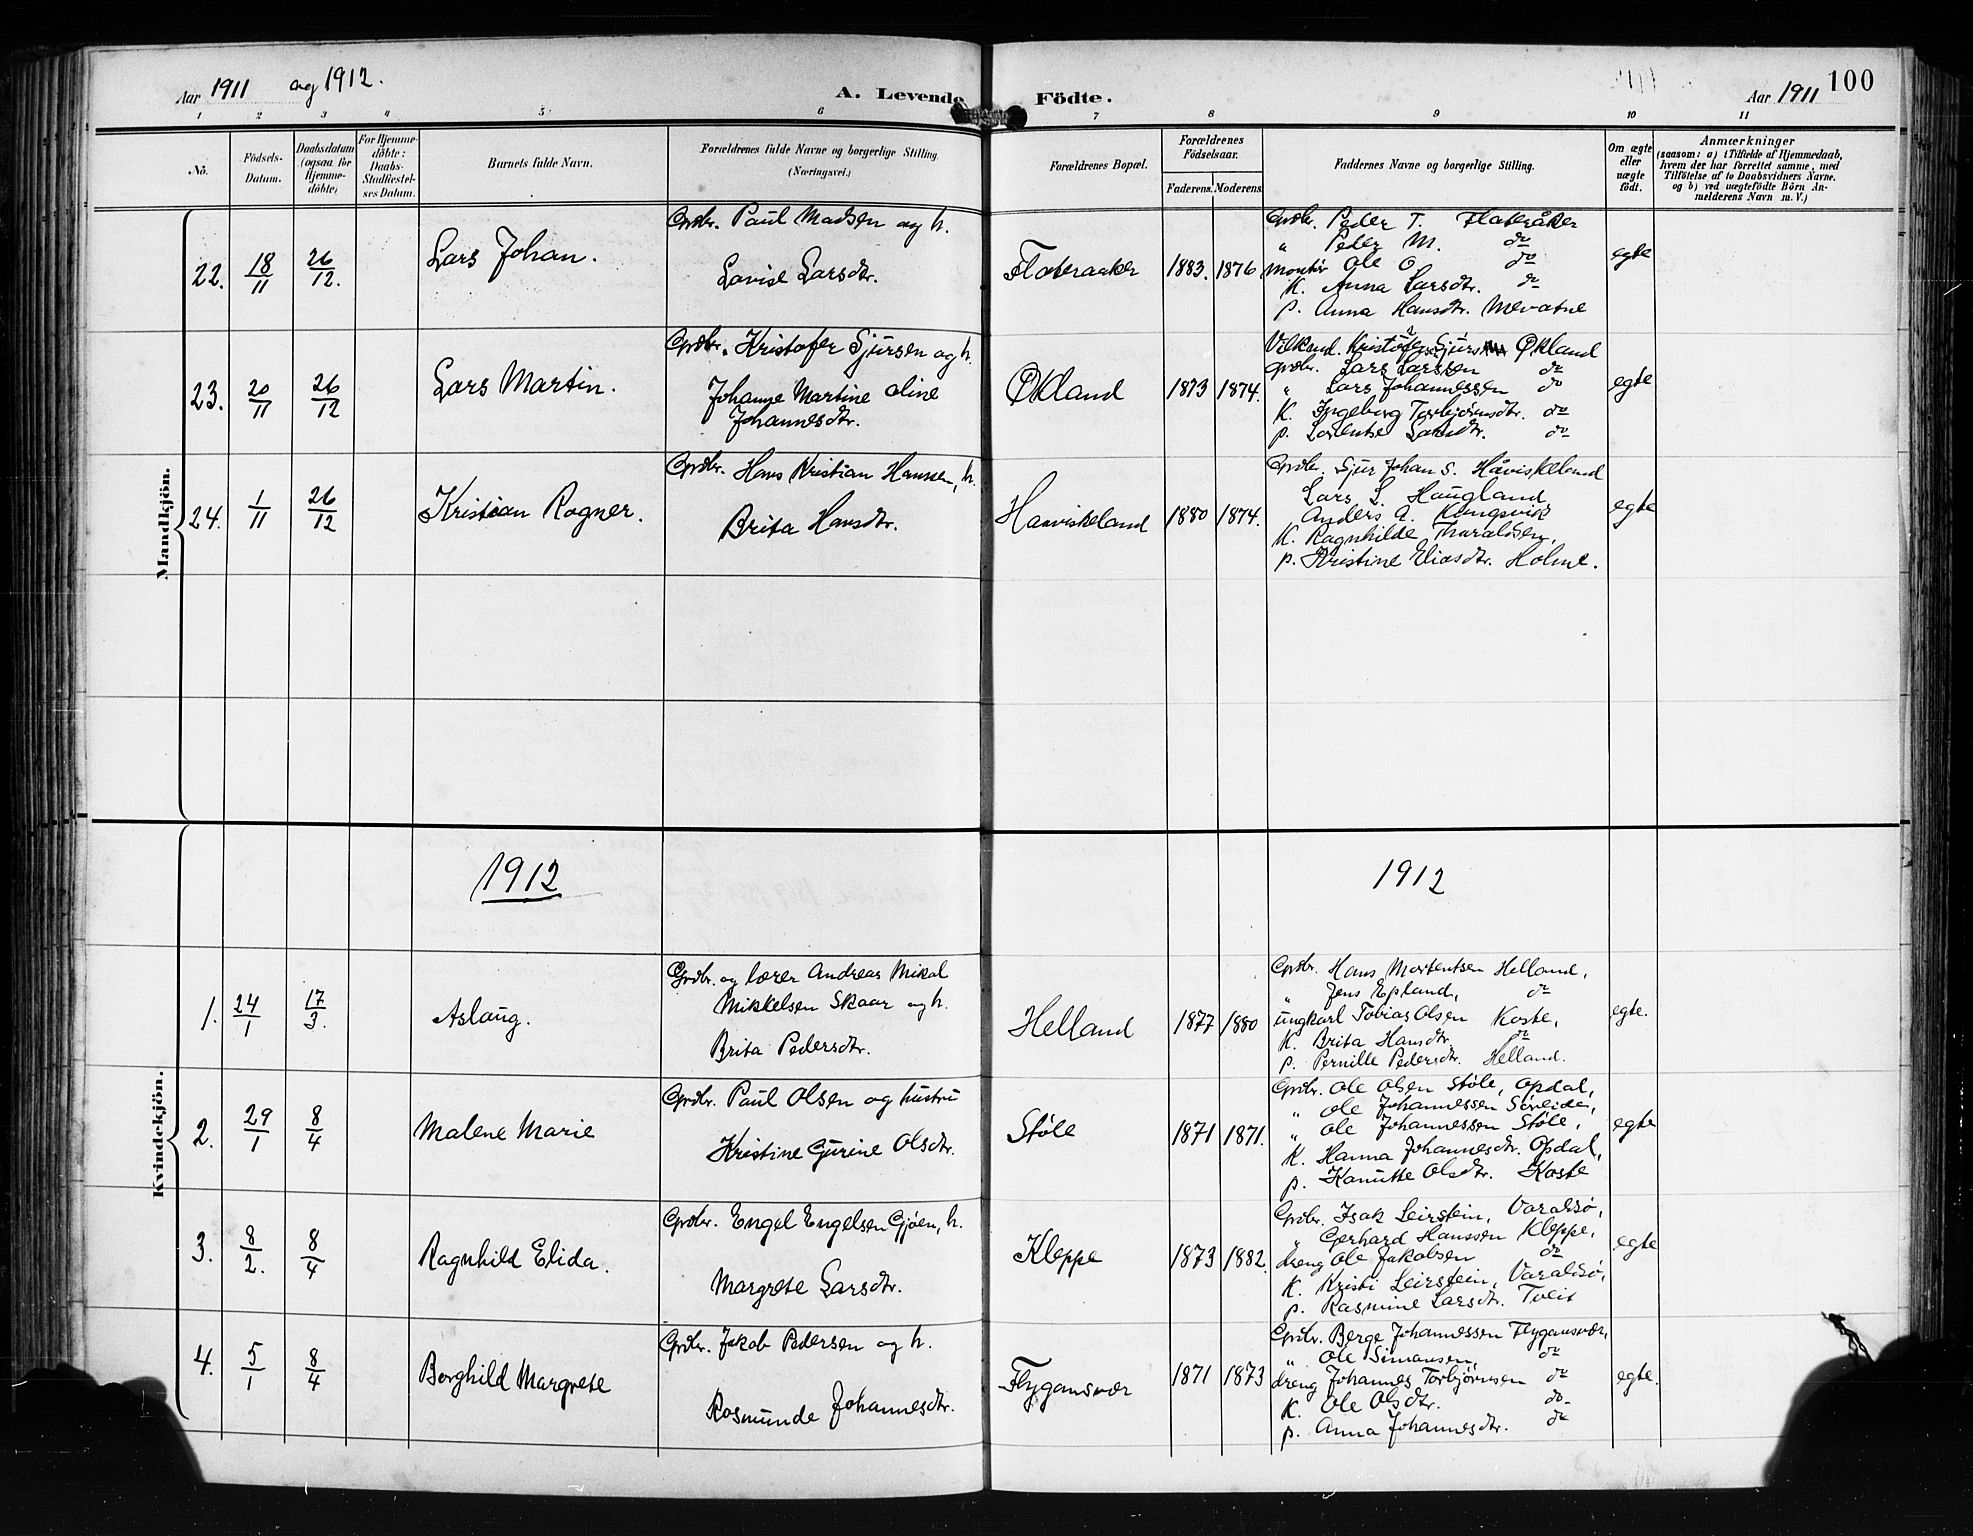 Aar 1911 og 1912.
A. Levende Födte.
Aar 1911
100
1 2 3 4 5 6 7 8 9 10 11
No.
Födsels-
Datum.
Daabsdatum
(ogsaa for
Hjemme-
döbte)
For Hjemme-
döbte:
Daabs-
Stadfæstel-
ses Datum.
Barnets fulde Navn.
Forældrenes fulde Navne og borgerlige Stilling.
(Næringsvei.)
Forældrenes Bopæl.
Forældrenes
Födselsaar.
Faderens. Moderens.
Faddernes Navne og borgerlige Stilling.
Om ægte
eller
uægte
födt.
Anmærkninger
(saasom: a) i Tilfælde af Hjemmedaab,
hvem der har forrettet samme, med
Tilföielse af to Daabsvidners Navne,
og b) ved uægtefödte Börn An-
melderens Navn m. V.)
Mandkjön.
22. 18/11 26/12.
Lars Johan.
Grdbr. Paul Madsen og h.
Lovise Larsdtr.
Flateraaker
1883. 1876
Grdbr. Peder T. Flateråker
" Peder M. do
Montör Ole O do
K. Anna Larsdtr. do
p. Anna Hansdtr. Mevatne
egte
23. 20/11 26/12
Lars Martin.
Grdbr. Kristofer Sjursen og h.
Johanne Martine Oline
Johannesdtr.
Økland
1873 1874.
Økland
Grdbr. Lars Larssen do
" Lars Johannessen do
K. Ingeborg Torbjörnsdtr. do
p. Lorentse Larsdtr. do
egte
24. 1/11 26/12
Kristian Ragner.
Grdbr. Hans Kristian Hanssen, h.
Brita Hansdtr.
Haaviskeland
1880 1874.
Grdbr. Sjur Johan S. Håviskeland
Lars L. Haugland
Anders A. Kungsvik
K. Ragnhilde Tharaldsen,
p. Kristine Eliasdtr. Holme.
egte
Kvindekjön.
1912
1912
1. 24/1 17/3.
Aslaug.
Grdbr. og lærer Andreas Mikal
Mikkelsen Skaar og h.
Brita Pedersdtr.
Helland
1877 1880
Grdbr. Hans Mortentsen Helland,
" Jens Epland, do
Ungkarl Tobias Olsen Koste,
K. Brita Hansdtr. do
p. Pernille Pedersdtr. Helland.
egte.
2. 29/1 8/4
Malene Marie
Grdbr. Paul Olsen og hustru
Kristine Gurine Olsdtr.
Støle
1871 1871.
Grdbr. Ole Olsen Støle, Opdal,
" Ole Johannessen Söreide,
" Ole Johannessen Støle,
K. Hanna Johannesdtr. Opdal,
p. Kanutte Olsdtr. Koste
egte
3. 8/2. 8/4
Ragnhild Elida.
Grdbr. Engel Engelsen Gjøen, h.
Margrete Larsdtr.
Kleppe
1873 1882.
Grdbr. Isak Leirstein, Varaldsø,
" Gerhard Hanssen Kleppe,
dreng Ole Jakobsen do
K. Kristi Leirstein, Varaldsø,
p. Rasmine Larsdtr. Tveit
egte
4. 5/1 8/4
Borghild Margrete
Grdbr. Jakob Pedersen og h.
Rosmunde Johannesdtr.
Flygansvær
1871 1873
Grdbr. Berge Johannessen Flygansvær,
" Ole Simonsen, do
dreng Johannes Torbjørnsen do
K. Ole Olsdtr. do
p. Anna Johannesdtr. do
egte.